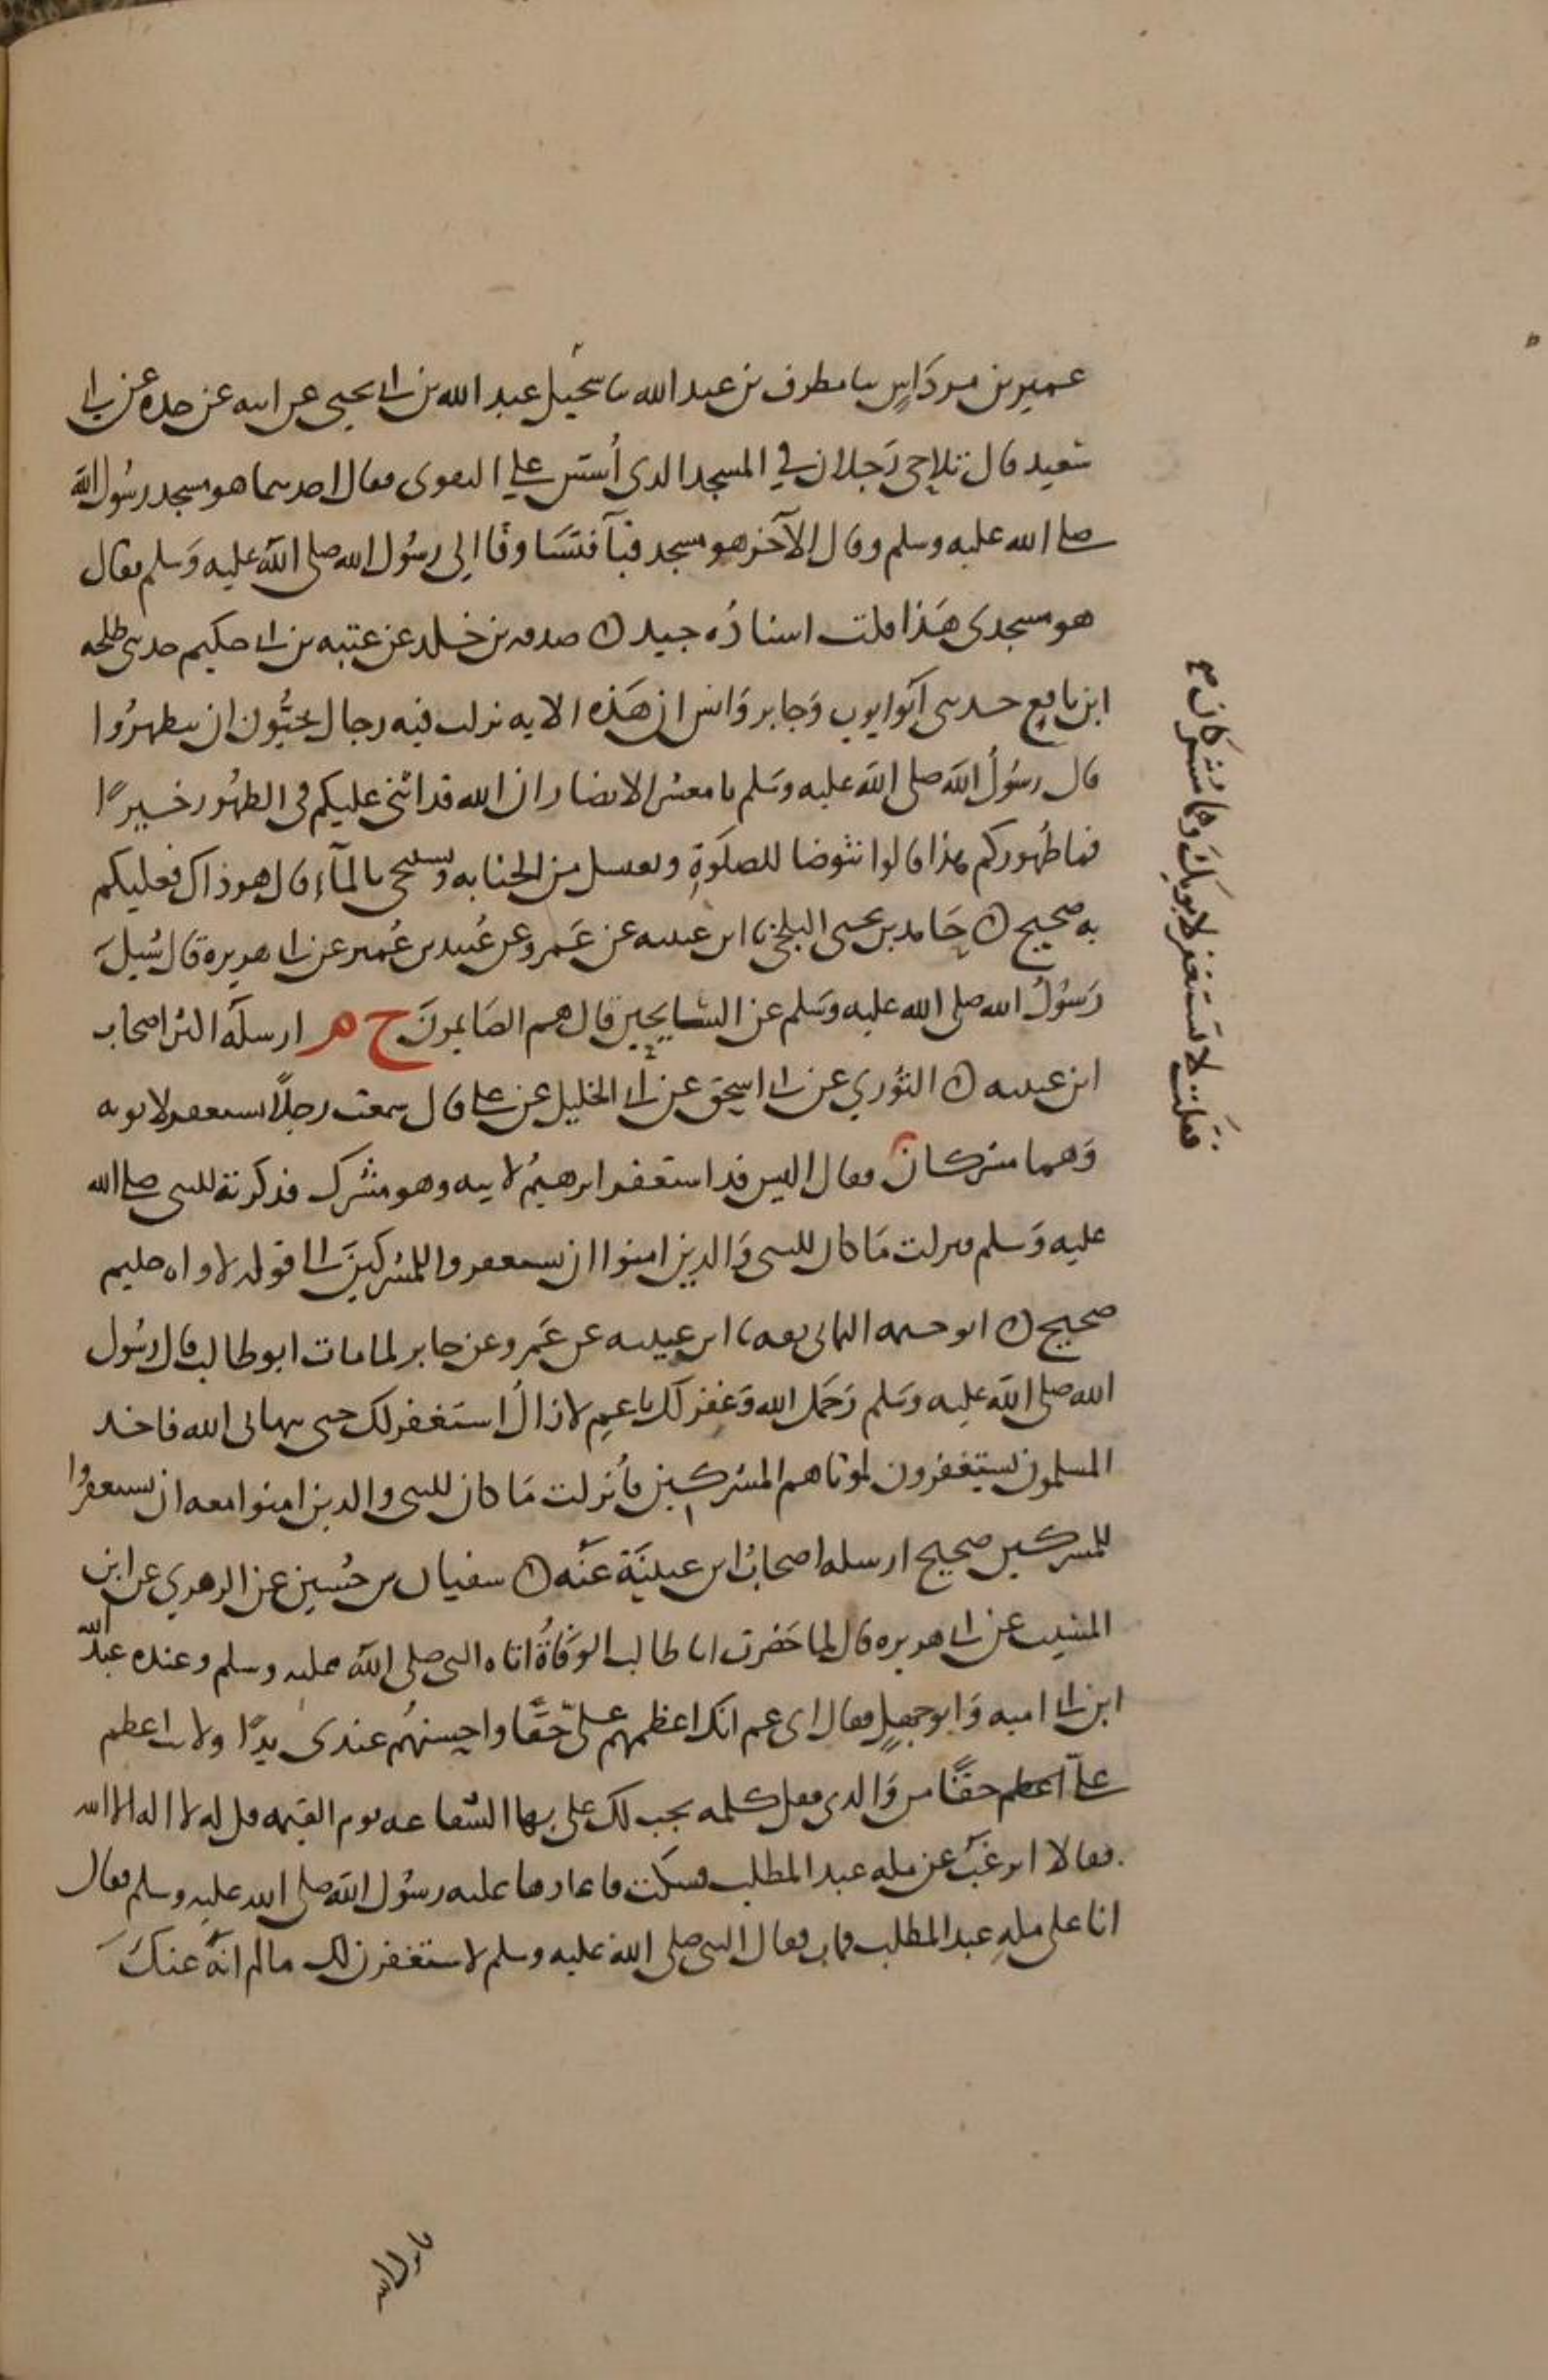 عمير بن مرداس نا مطرف بن عبد الله نا سحبل عبد الله بن ابي يحيى عن ابيه عن جده عن ابي
سعيد قال تلاحى رجلان في المسجد الذي أسس على التقوى فقال احدهما هو مسجد رسول الله
صلى الله عليه وسلم وقال الآخر هو مسجد قبآ فتساوقا الى رسول الله صلى الله عليه وسلم فقال
هو مسجدى هذا قلت اسناده جيد ن صدقه بن خلد عن عتبه بن ابي حكيم حدثني طلحه
ابن نافع حدثني ابو ايوب وجابر وانس ان هذه الايه نزلت فيه رجال يحبون ان يتطهروا
قال رسول الله صلى الله عليه وسلم يا معشر الانصار ان الله قد اثنى عليكم في الطهور خيرا
فما طهوركم هذا قالوا نتوضا للصلوة ونغتسل من الجنابه ونستنجي بالمآء قال هو ذاك فعليكم
به صحيح ن حامد بن يحيى البلخي نا ابن عيينه عن عمرو عن عبيد بن عمير عن ابي هريرة قال سُيل
رسول الله صلى الله عليه وسلم عن السايحين قال هم الصايمون خ م ارسله اكثر اصحاب
ابن عيينه ن الثوري عن ابي اسحق عن ابي الخليل عن علي قال سمعت رجلا يستغفر لابويه
وهما مشركان فقال اليس قد استغفر ابرهيم لابيه وهو مشرك فذكرته للنبي صلى الله
عليه وسلم فنزلت ما كان للنبي والذين امنوا ان يستغفروا للمشركين الى قوله لاواه حليم
صحيح ن ابو حمه اليماني ثقه نا ابن عيينه عن عمرو عن جابر لما مات ابو طالب قال رسول
الله صلى الله عليه وسلم رحمك الله وغفر لك يا عم لا زال استغفر لك حتى ينهاني الله فاخذ
المسلمون يستغفرون لموتاهم المشركين فأنزلت ما كان للنبي والذين امنوا معه ان يستغفروا
للمشركين صحيح ارسله اصحاب ابن عيينة عنه ن سفيان بن حسين عن الزهري عن ابن
المسيب عن ابي هريره قال لما حضرت ابا طالب الوفاة اتاه النبي صلى الله عليه وسلم وعنده عبد الله
ابن ابي اميه وابو جهل فقال اي عم انك اعظمهم علي حقا واحسنهم عندي يدا ولانت اعظم
علي اعظم حقا من والدي فقل كلمه يجب لك علي بها الشفاعه يوم القيمه قل له لا اله الا الله
فقالا اترغب عن مله عبد المطلب فسكت فاعادها عليه رسول الله صلى الله عليه وسلم فقال
انا على مله عبد المطلب فمات فقال النبي صلى الله عليه وسلم لاستغفرن لك ما لم انه عنك
فقلت لا تستغفر لابويك وهما مشركان
فانزل الله